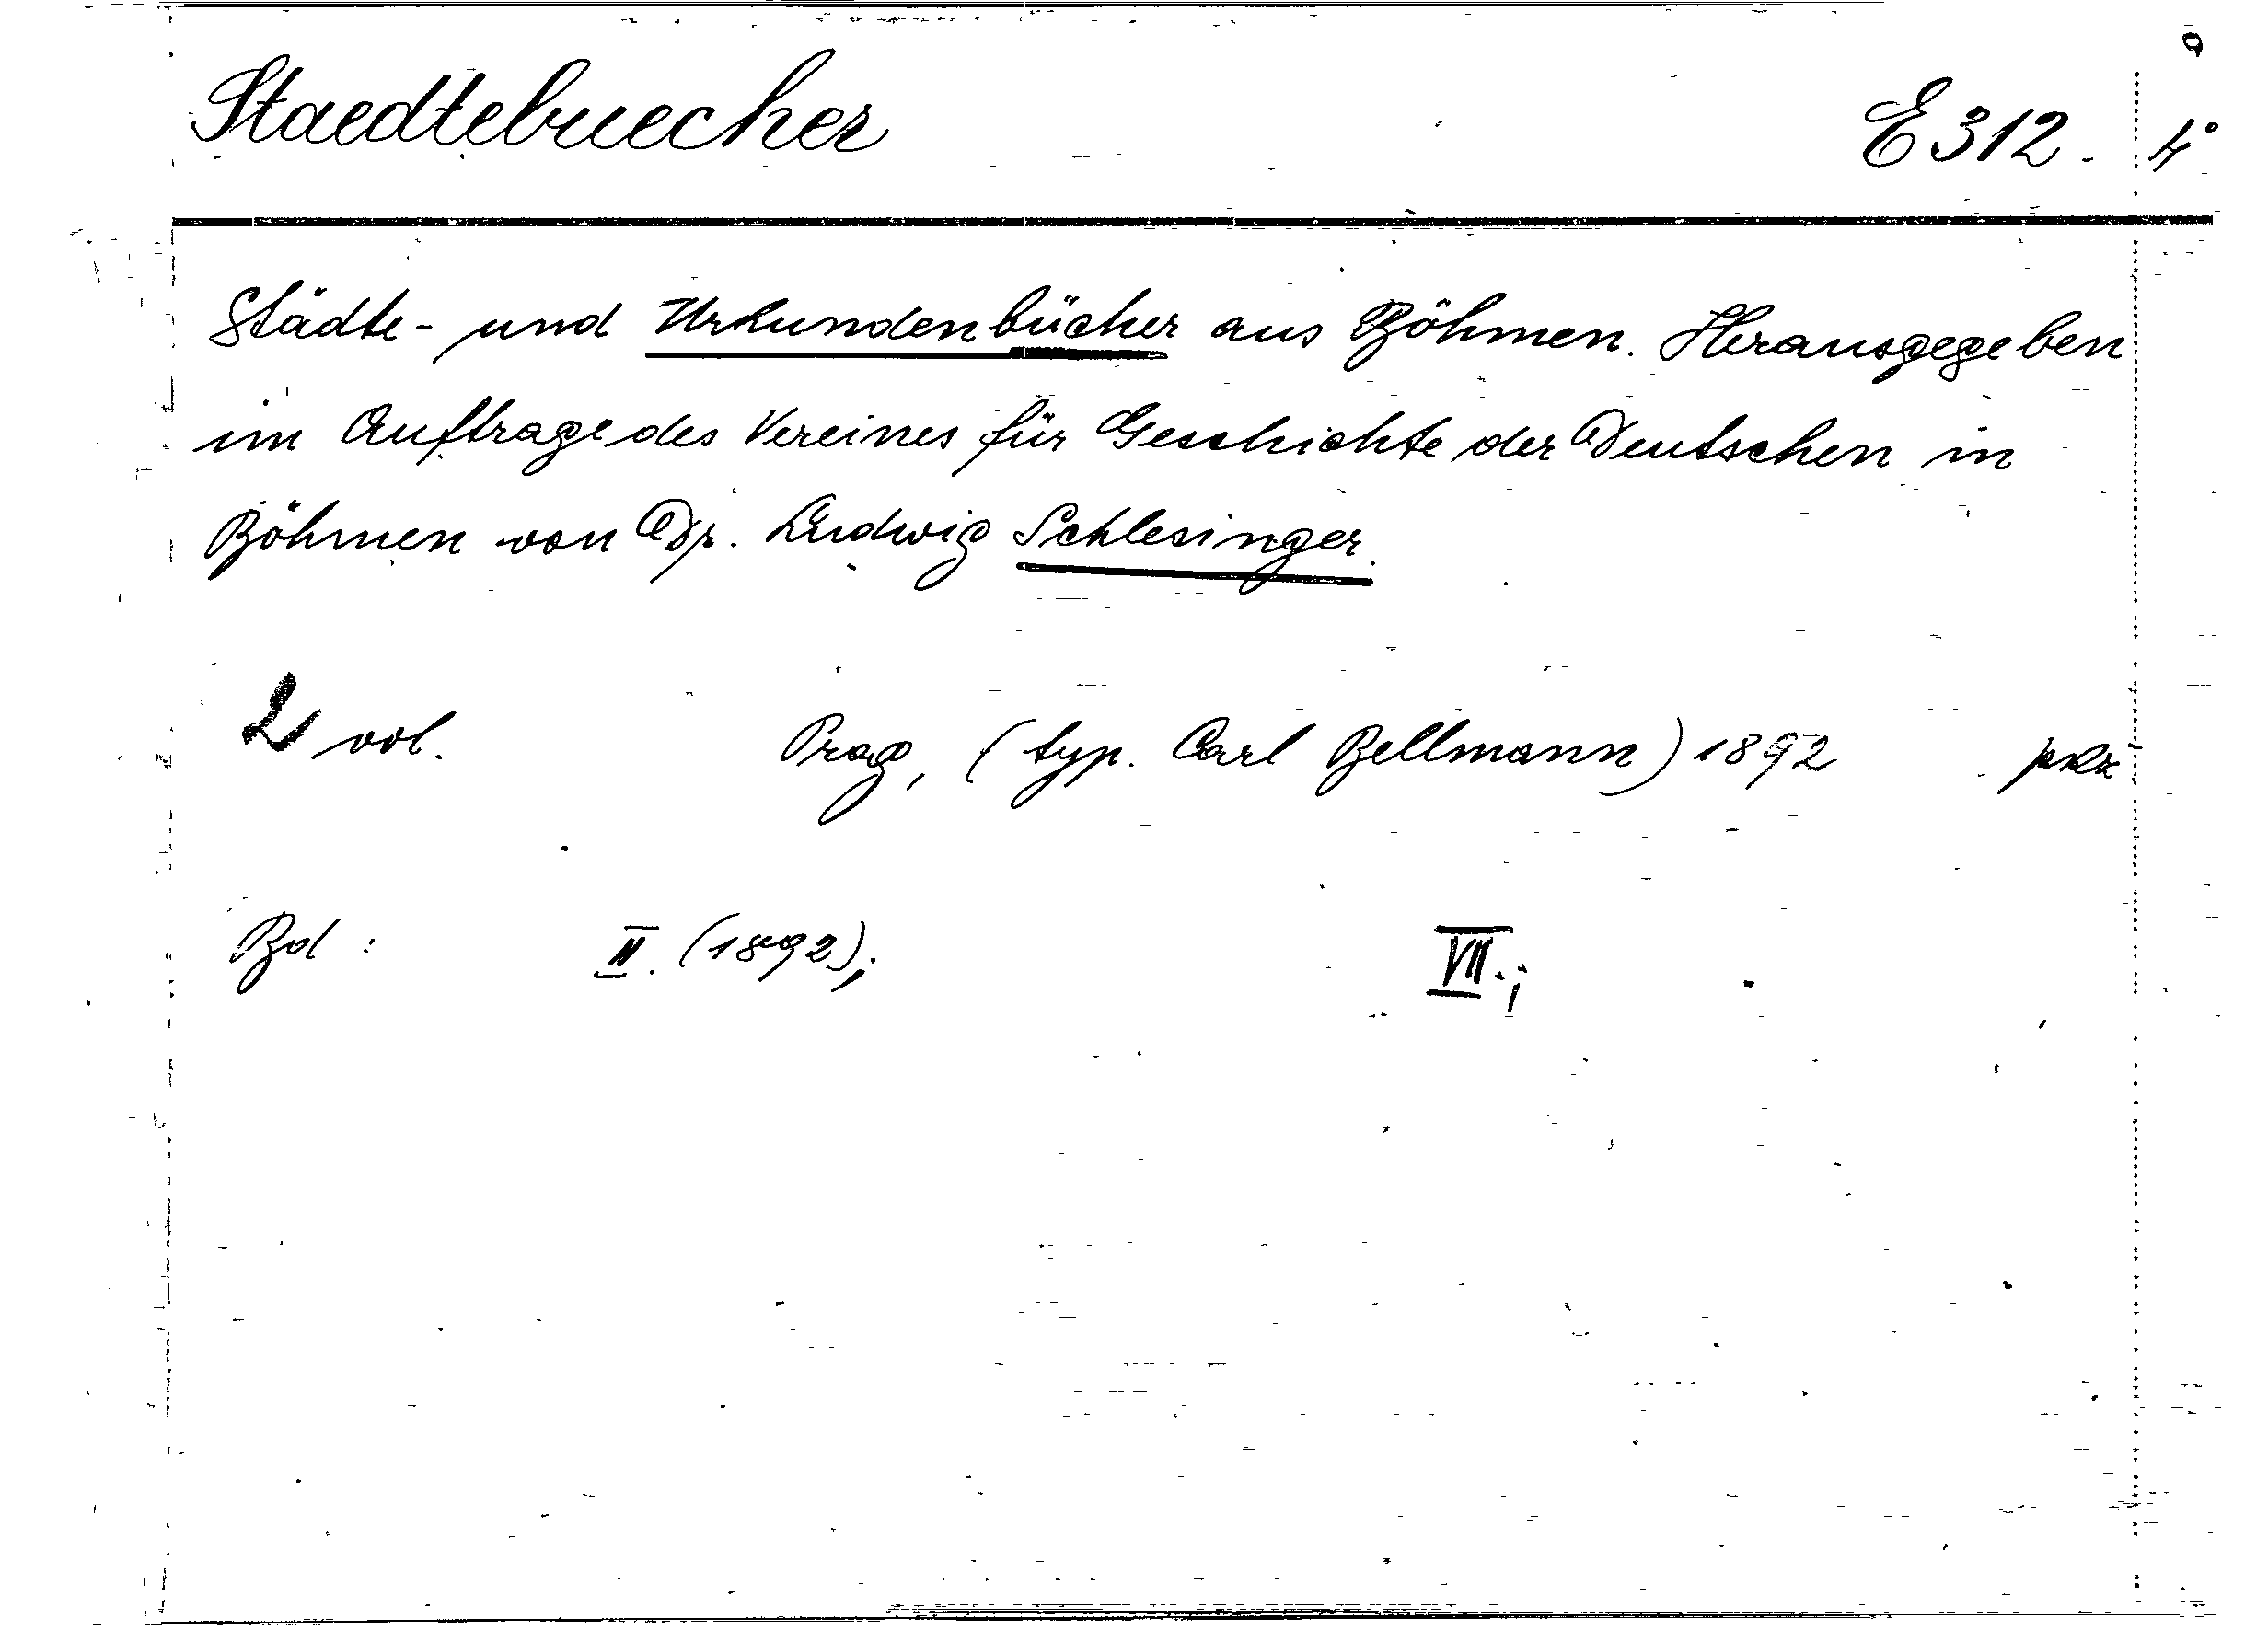 Staedtebuecher E 312. 4°
Städte- und Urkundenbücher aus Böhmen. Herausgegeben
im Auftrage des Vereines für Geschichte der Deutschen in
Böhmen von Dr. Ludwig Schlesinger.
2 vol. Prag, (typ. Carl Bellmann) 1892
Bd : II. (1892); VII.;